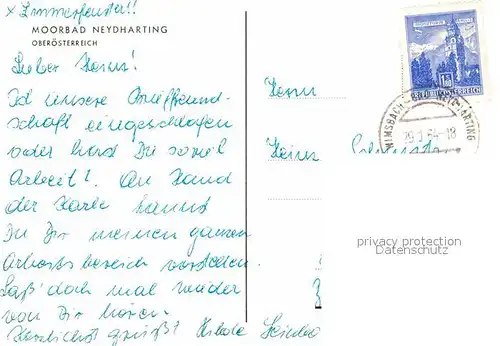 x Zimmerfenster!!
MOORBAD NEYDHARTING
OBERÖSTERREICH
Lieber Heinz!
Ist unsere Brieffreund-
schaft eingeschlafen
oder hast Du soviel
Arbeit? An Hand
der Karte kannst
Du Dir meinen ganzen
Arbeitsbereich vorstellen.
Laß' doch mal wieder
von Dir hören.
Herzlichst grüßt
Herrn
Heinz
REPUBLIK ÖSTERREICH
WIMSBACH - BAD NEYDHARTING
privacy protection
Datenschutz